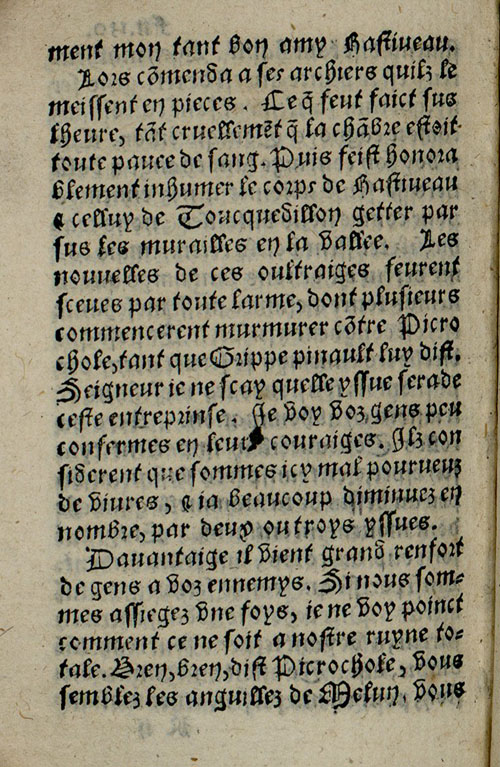 ment mon tant bon amy Hastiueau.
Lors cõmenda a ses archiers quilz le
meissent en pieces. Ce q̃ feut faict sus
lheure, tãt cruellemẽt q̃ la chãbre estoit
toute pauee de sang. Puis feist honora
blement inhumer le corps de Hastiueau
& celluy de Toucquedillon getter par
sus les murailles en la vallee. Les
nouuelles de ces oultraiges feurent
sceues par toute larme, dont plusieurs
commencerent murmurer cõtre Picro
chole, tant que Grippe pinault luy dist.
Seigneur ie ne scay quelle yssue sera de
ceste entreprinse. Je voy voz gens peu
confermes en leurs couraiges. Ilz con
siderent que sommes icy mal pourueuz
de viures, & ia beaucoup diminuez en
nombre, par deux ou troys yssues.
Dauantaige il vient grand renfort
de gens a voz ennemys. Si nous som-
mes assiegez vne foys, ie ne voy poinct
comment ce ne soit a nostre ruyne to-
tale. Bren, bren, dist Picrochole, vous
semblez les anguillez de Melun, vous